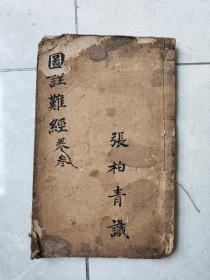 圖註難經卷叁
張柏青識